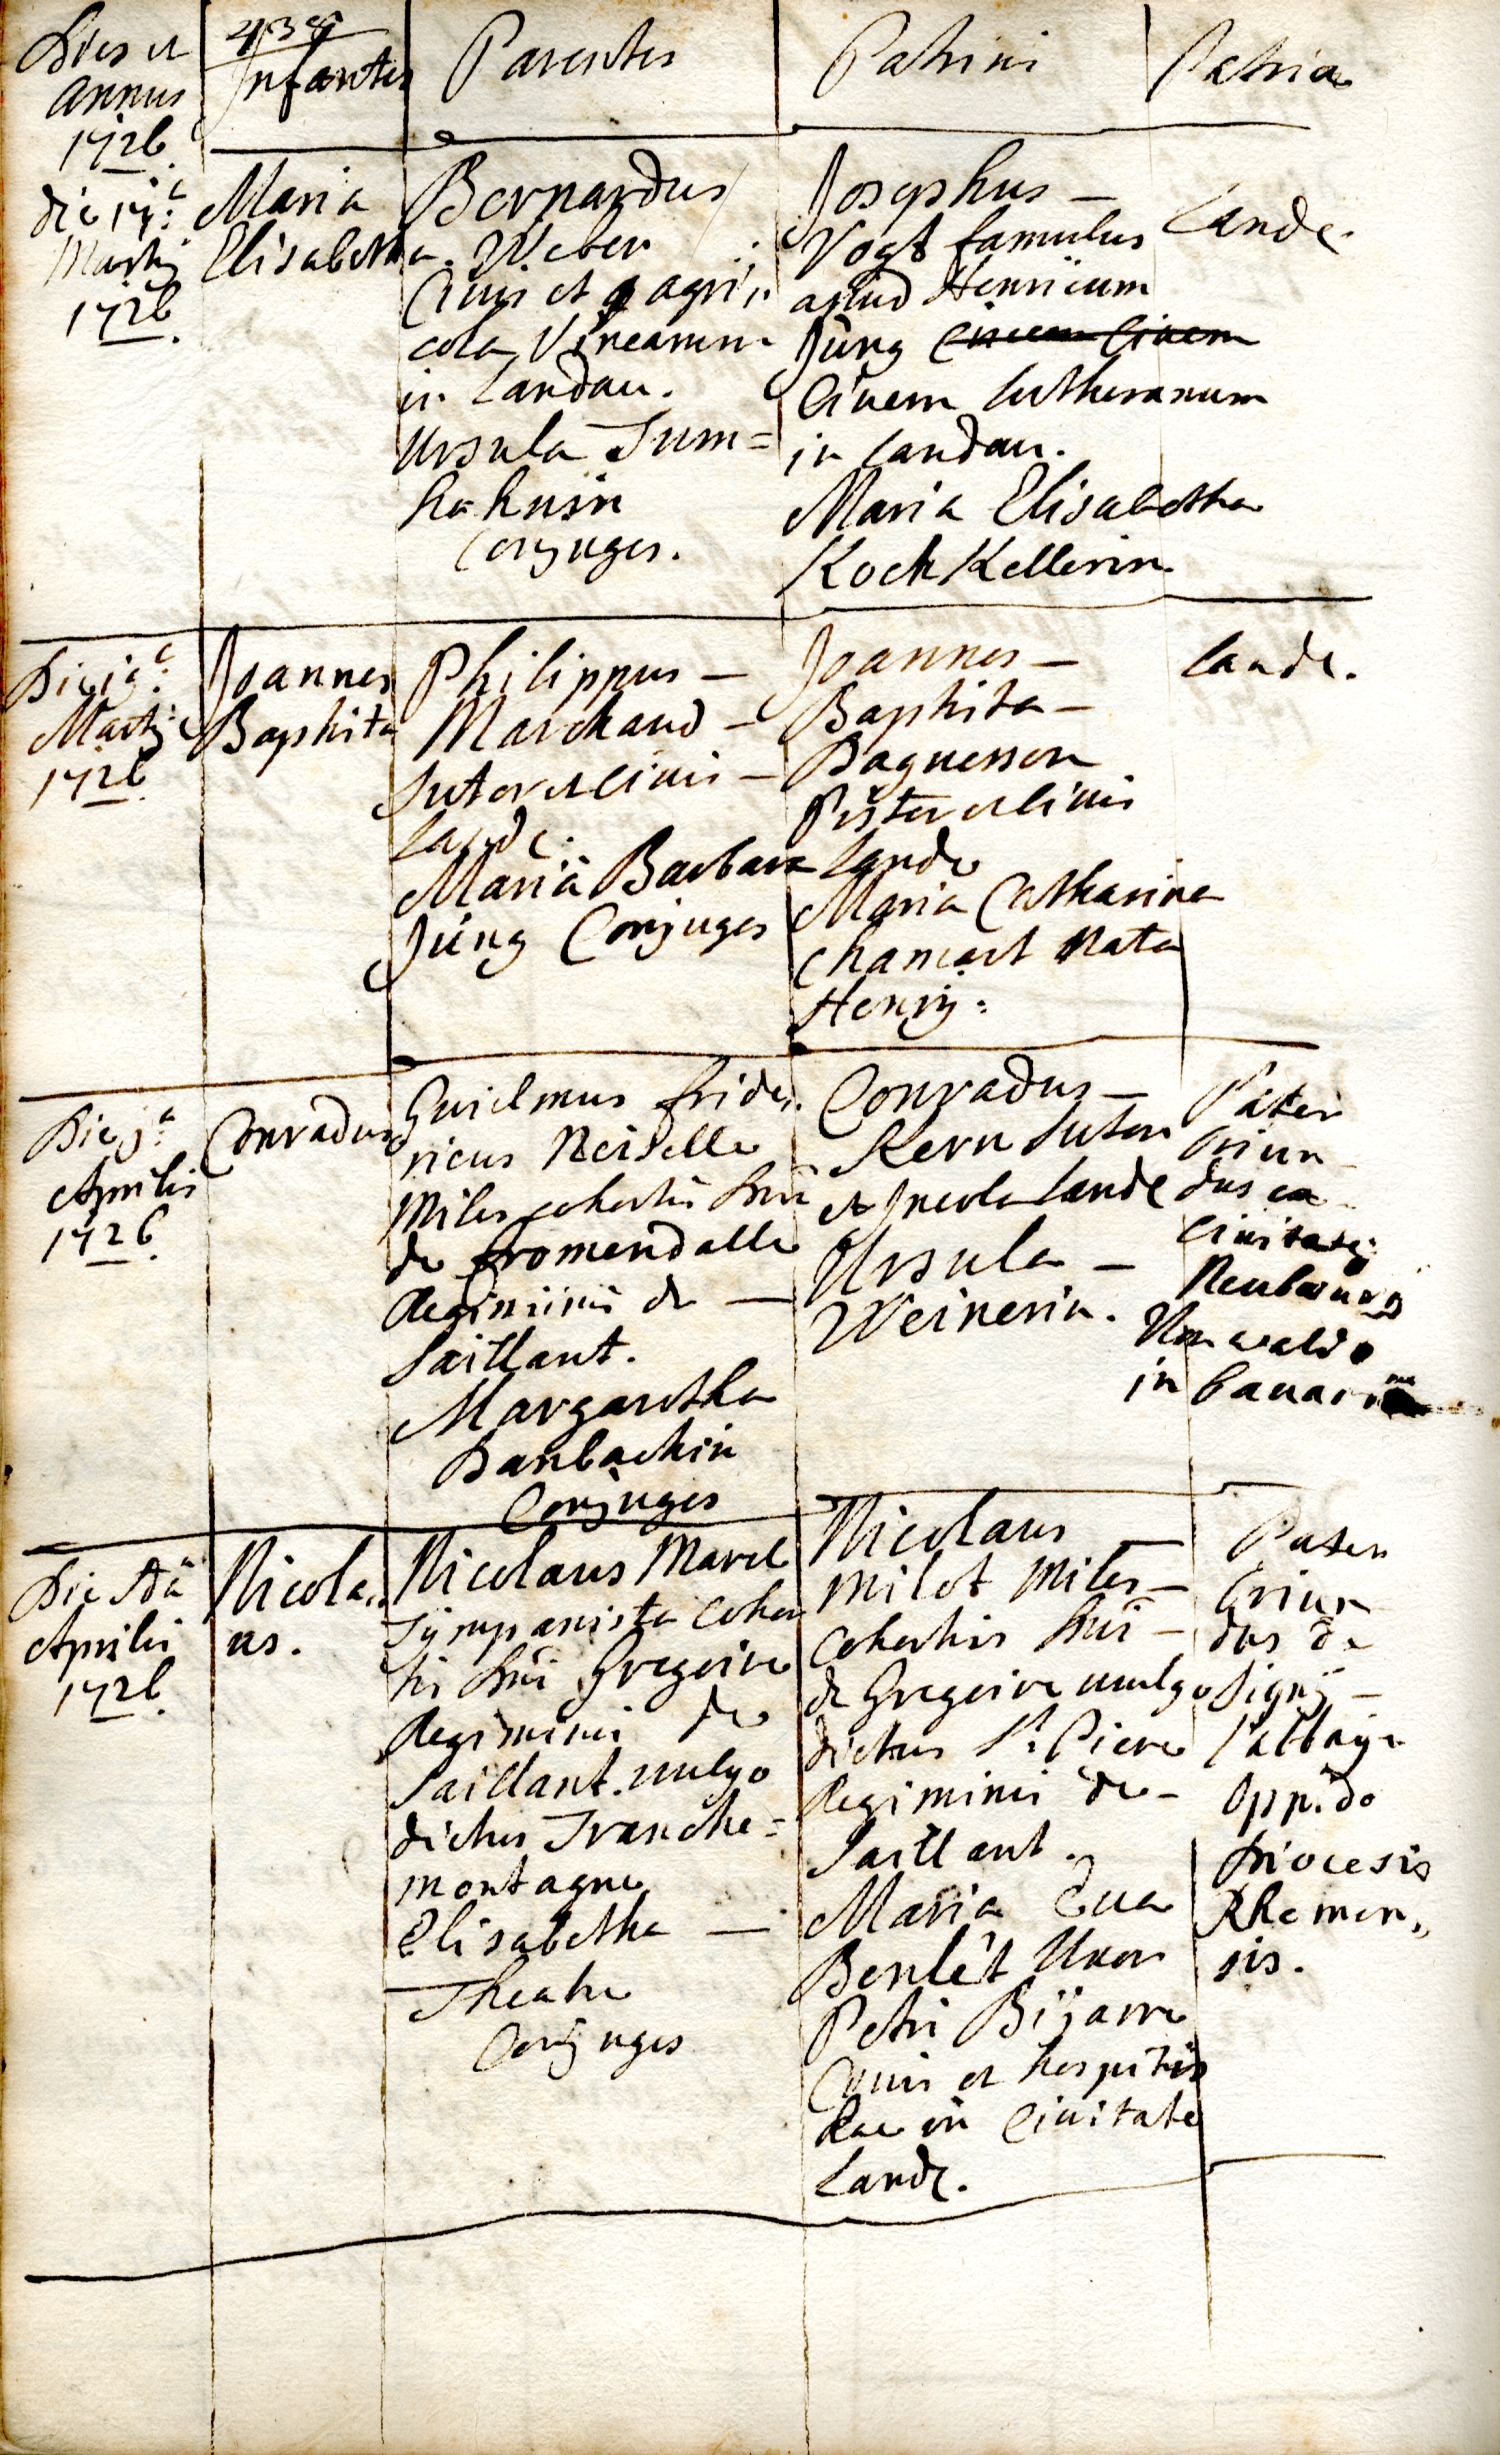 Dies et
annus
1726.
438
Infantes
Parentes
Patrini
Patria
die 17.a
Martij
1726.
Maria
Elisabetha.
Bernardus
Weber
Civis et agri„
cola Vinearum
in Landau.
Ursula Tum=
hahnin
Conjuges.
Josephus —
Vogt famulus
apud Henricum
Jüng Civem
Civem lutheranum
in Landau.
Maria Elisabetha
Koch Kellerin
Landę.
Martij
1726
Joannes
Baptista
Philippus —
Marchand —
Sutor et Civis —
Landę.
Maria Barbara
Jüng Conjuges
Joannes —
Baptista —
Baguesson
Pistor et Civis
Landę
Maria Catharina
Chamart Nata
Henrij:
Landę.
Aprilis
1726.
Conradus
Guielmus fride„
ricus Neiselle
Miles cohortis Dni
de fromendalle
Regiminis de —
Saillant.
Margaretha
Danbachin
Conjuges
Conradus —
Kern Sutor
et Incola Landę
Ursula —
Weinerin.
Pater
oriun
dus ex
Civitate
Neubourg
Vm wald
in bavaria
Aprilis
1726.
Nicola„
us.
Nicolaus Marel
Tympanista cohor
tis Dni Gregoire
Regiminis de
Saillant. vulgo
dictus Tranche=
montagne
Elisabetha —
Theatre
Conjuges
Nicolaus —
Milot Miles —
Cohortis Dni —
de Gregoire vulgo
dictus St. Piere
Regiminis de —
Saillant.
Maria Eva
Benlét Uxor
Petri Bijarre
Civis et hospitis
hac in Civitate
Landę.
Pater
oriun
dus de
Signÿ —
l'abbaye
oppido
Diocesis
Rhemen„
sis.